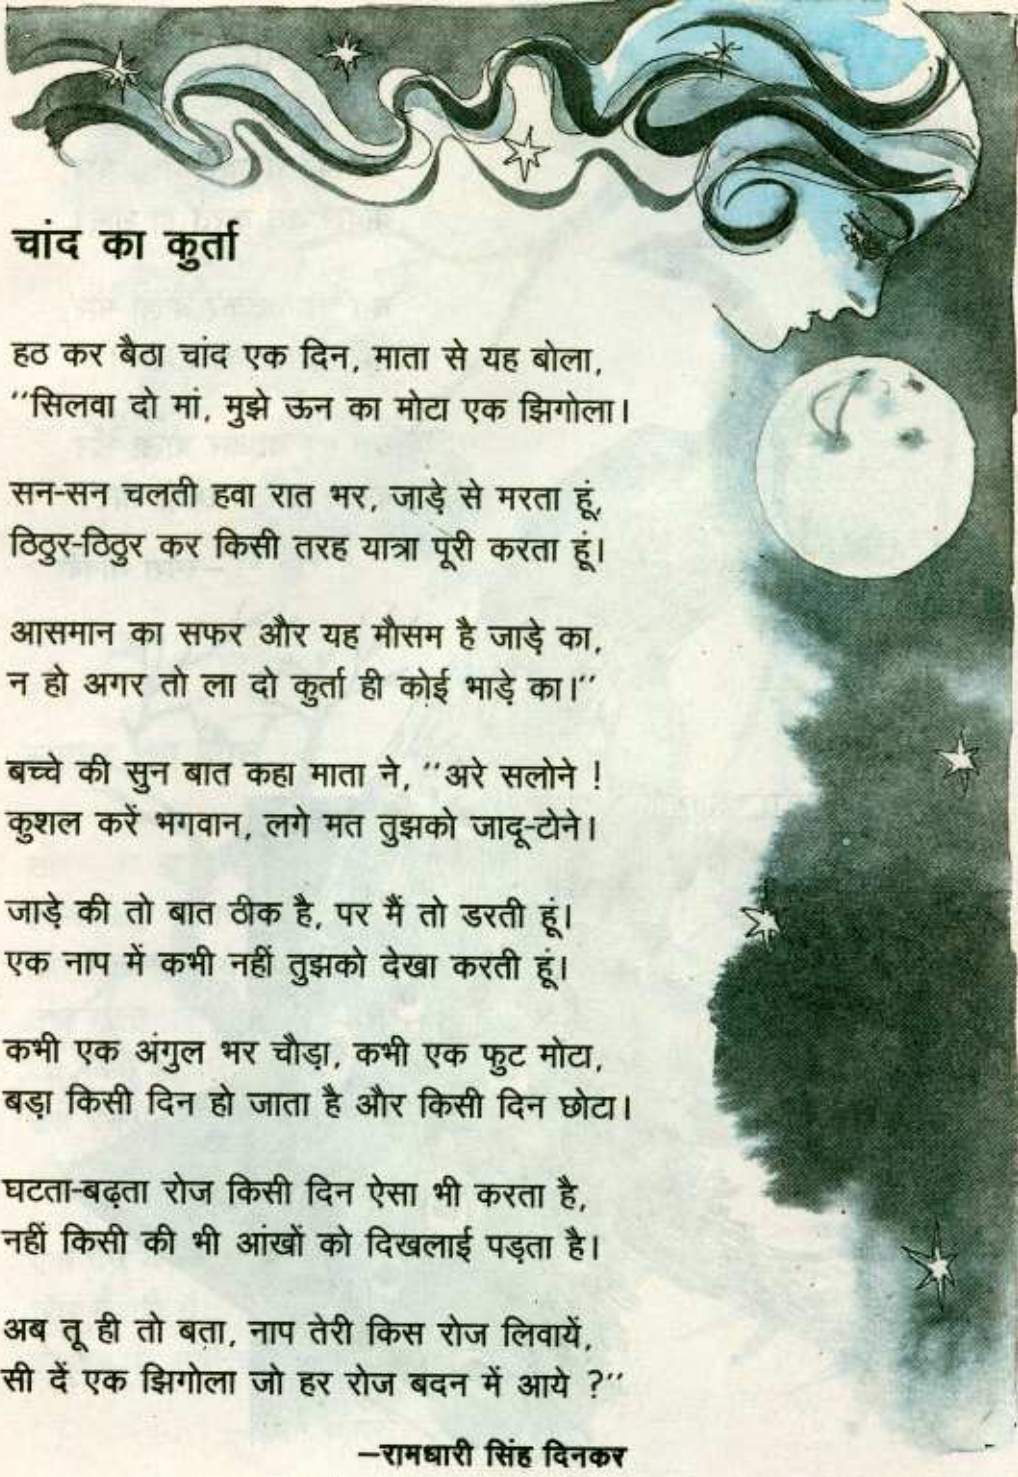 चांद का कुर्ता
हठ कर बैठा चांद एक दिन, माता से यह बोला,
“सिलवा दो मां, मुझे ऊन का मोटा एक झिगोला।
सन-सन चलती हवा रात भर, जाड़े से मरता हूं,
ठिठुर-ठिठुर कर किसी तरह यात्रा पूरी करता हूं।
आसमान का सफर और यह मौसम है जाड़े का,
न हो अगर तो ला दो कुर्ता ही कोई भाड़े का।”
बच्चे की सुन बात कहा माता ने, “अरे सलोने !
कुशल करें भगवान, लगे मत तुझको जादू-टोने।
जाड़े की तो बात ठीक है, पर मैं तो डरती हूं।
एक नाप में कभी नहीं तुझको देखा करती हूं।
कभी एक अंगुल भर चौड़ा, कभी एक फुट मोटा,
बड़ा किसी दिन हो जाता है और किसी दिन छोटा।
घटता-बढ़ता रोज किसी दिन ऐसा भी करता है,
नहीं किसी की भी आंखों को दिखलाई पड़ता है।
अब तू ही तो बता, नाप तेरी किस रोज लिवायें,
सी दें एक झिगोला जो हर रोज बदन में आये ?”
–रामधारी सिंह दिनकर